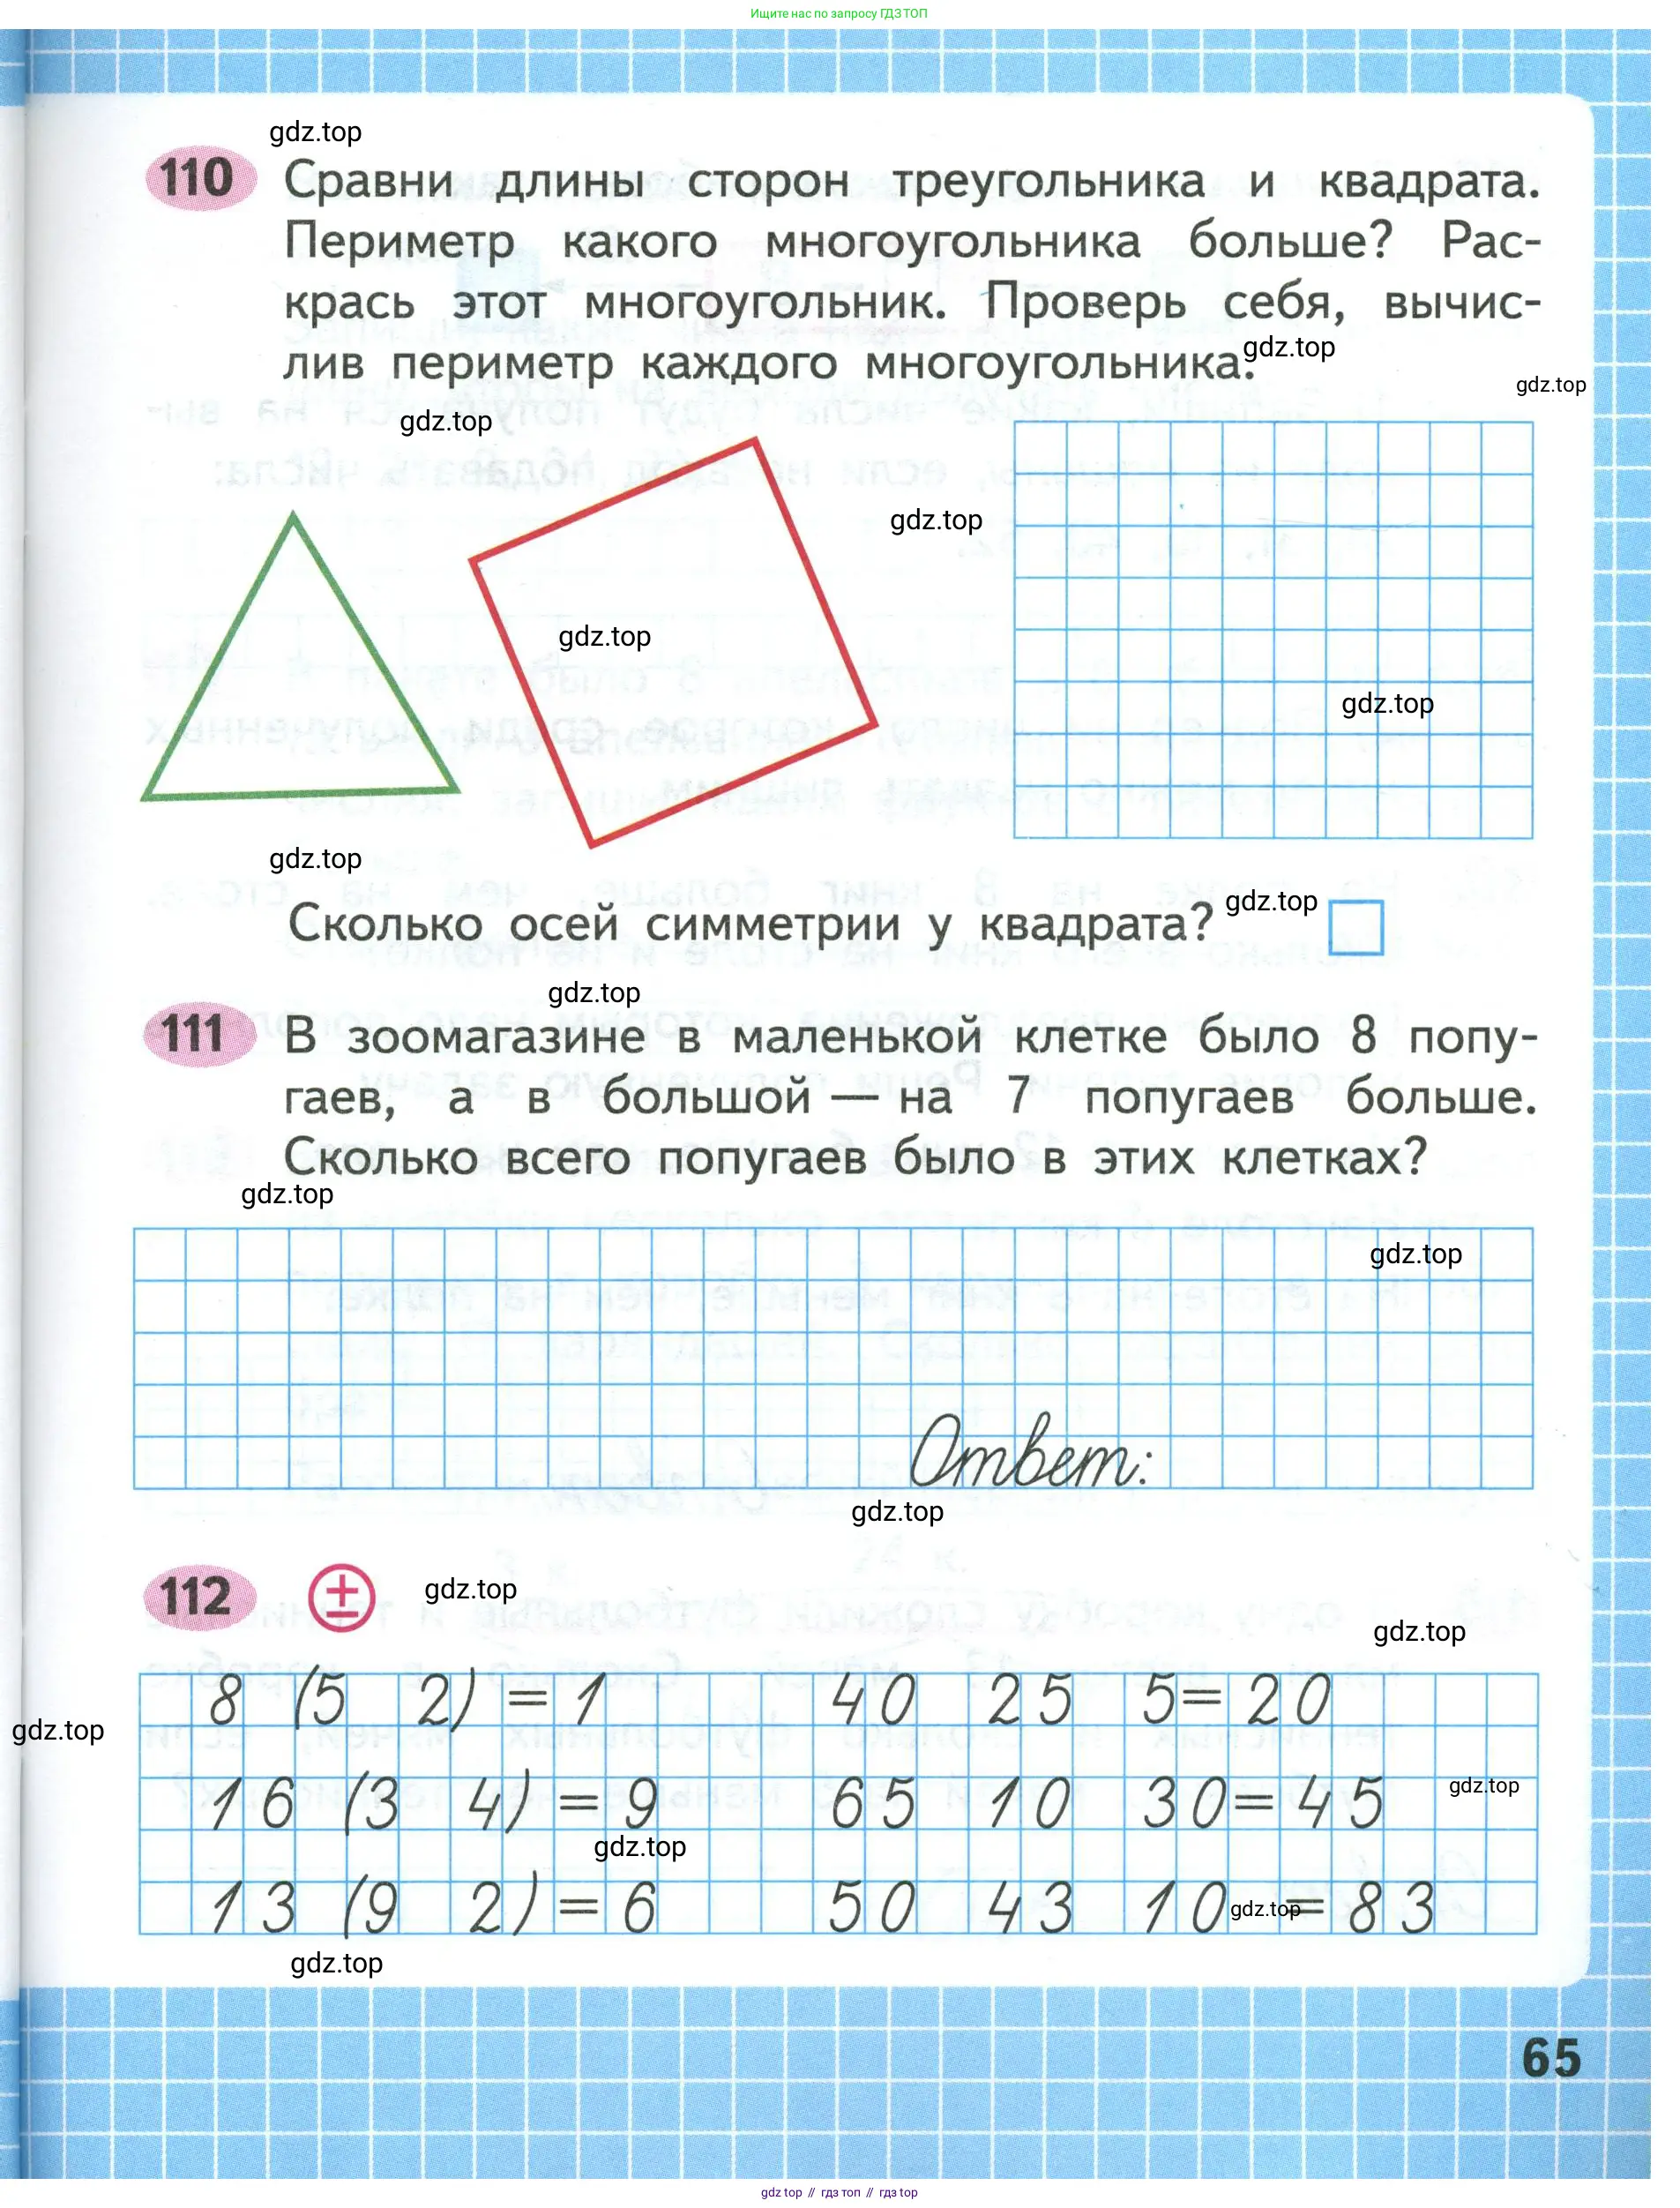 Ищите нас по запросу ГДЗ ТОП
gdz.top
110 Сравни длины сторон треугольника и квадрата.
Периметр какого многоугольника больше? Рас-
крась этот многоугольник. Проверь себя, вычис-
лив периметр каждого многоугольника.
gdz.top
gdz.top
gdz.top
gdz.top
gdz.top
gdz.top
gdz.top
Сколько осей симметрии у квадрата?
gdz.top
gdz.top
111 В зоомагазине в маленькой клетке было 8 попу-
гаев, а в большой — на 7 попугаев больше.
Сколько всего попугаев было в этих клетках?
gdz.top
gdz.top
Ответ:
gdz.top
112 ± gdz.top
gdz.top
8 (5 2) = 1 40 25 5 = 20
gdz.top
16 (3 4) = 9 65 10 30 = 45
gdz.top
gdz.top
13 (9 2) = 6 50 43 10 = 83
gdz.top
gdz.top
65
gdz.top // гдз топ // гдз top